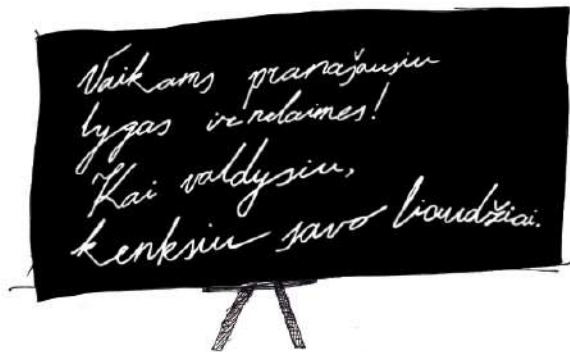 Vaikams pranašausiu
lygas ir nelaimes!
Kai valdysiu,
kenksiu savo liaudžiai.